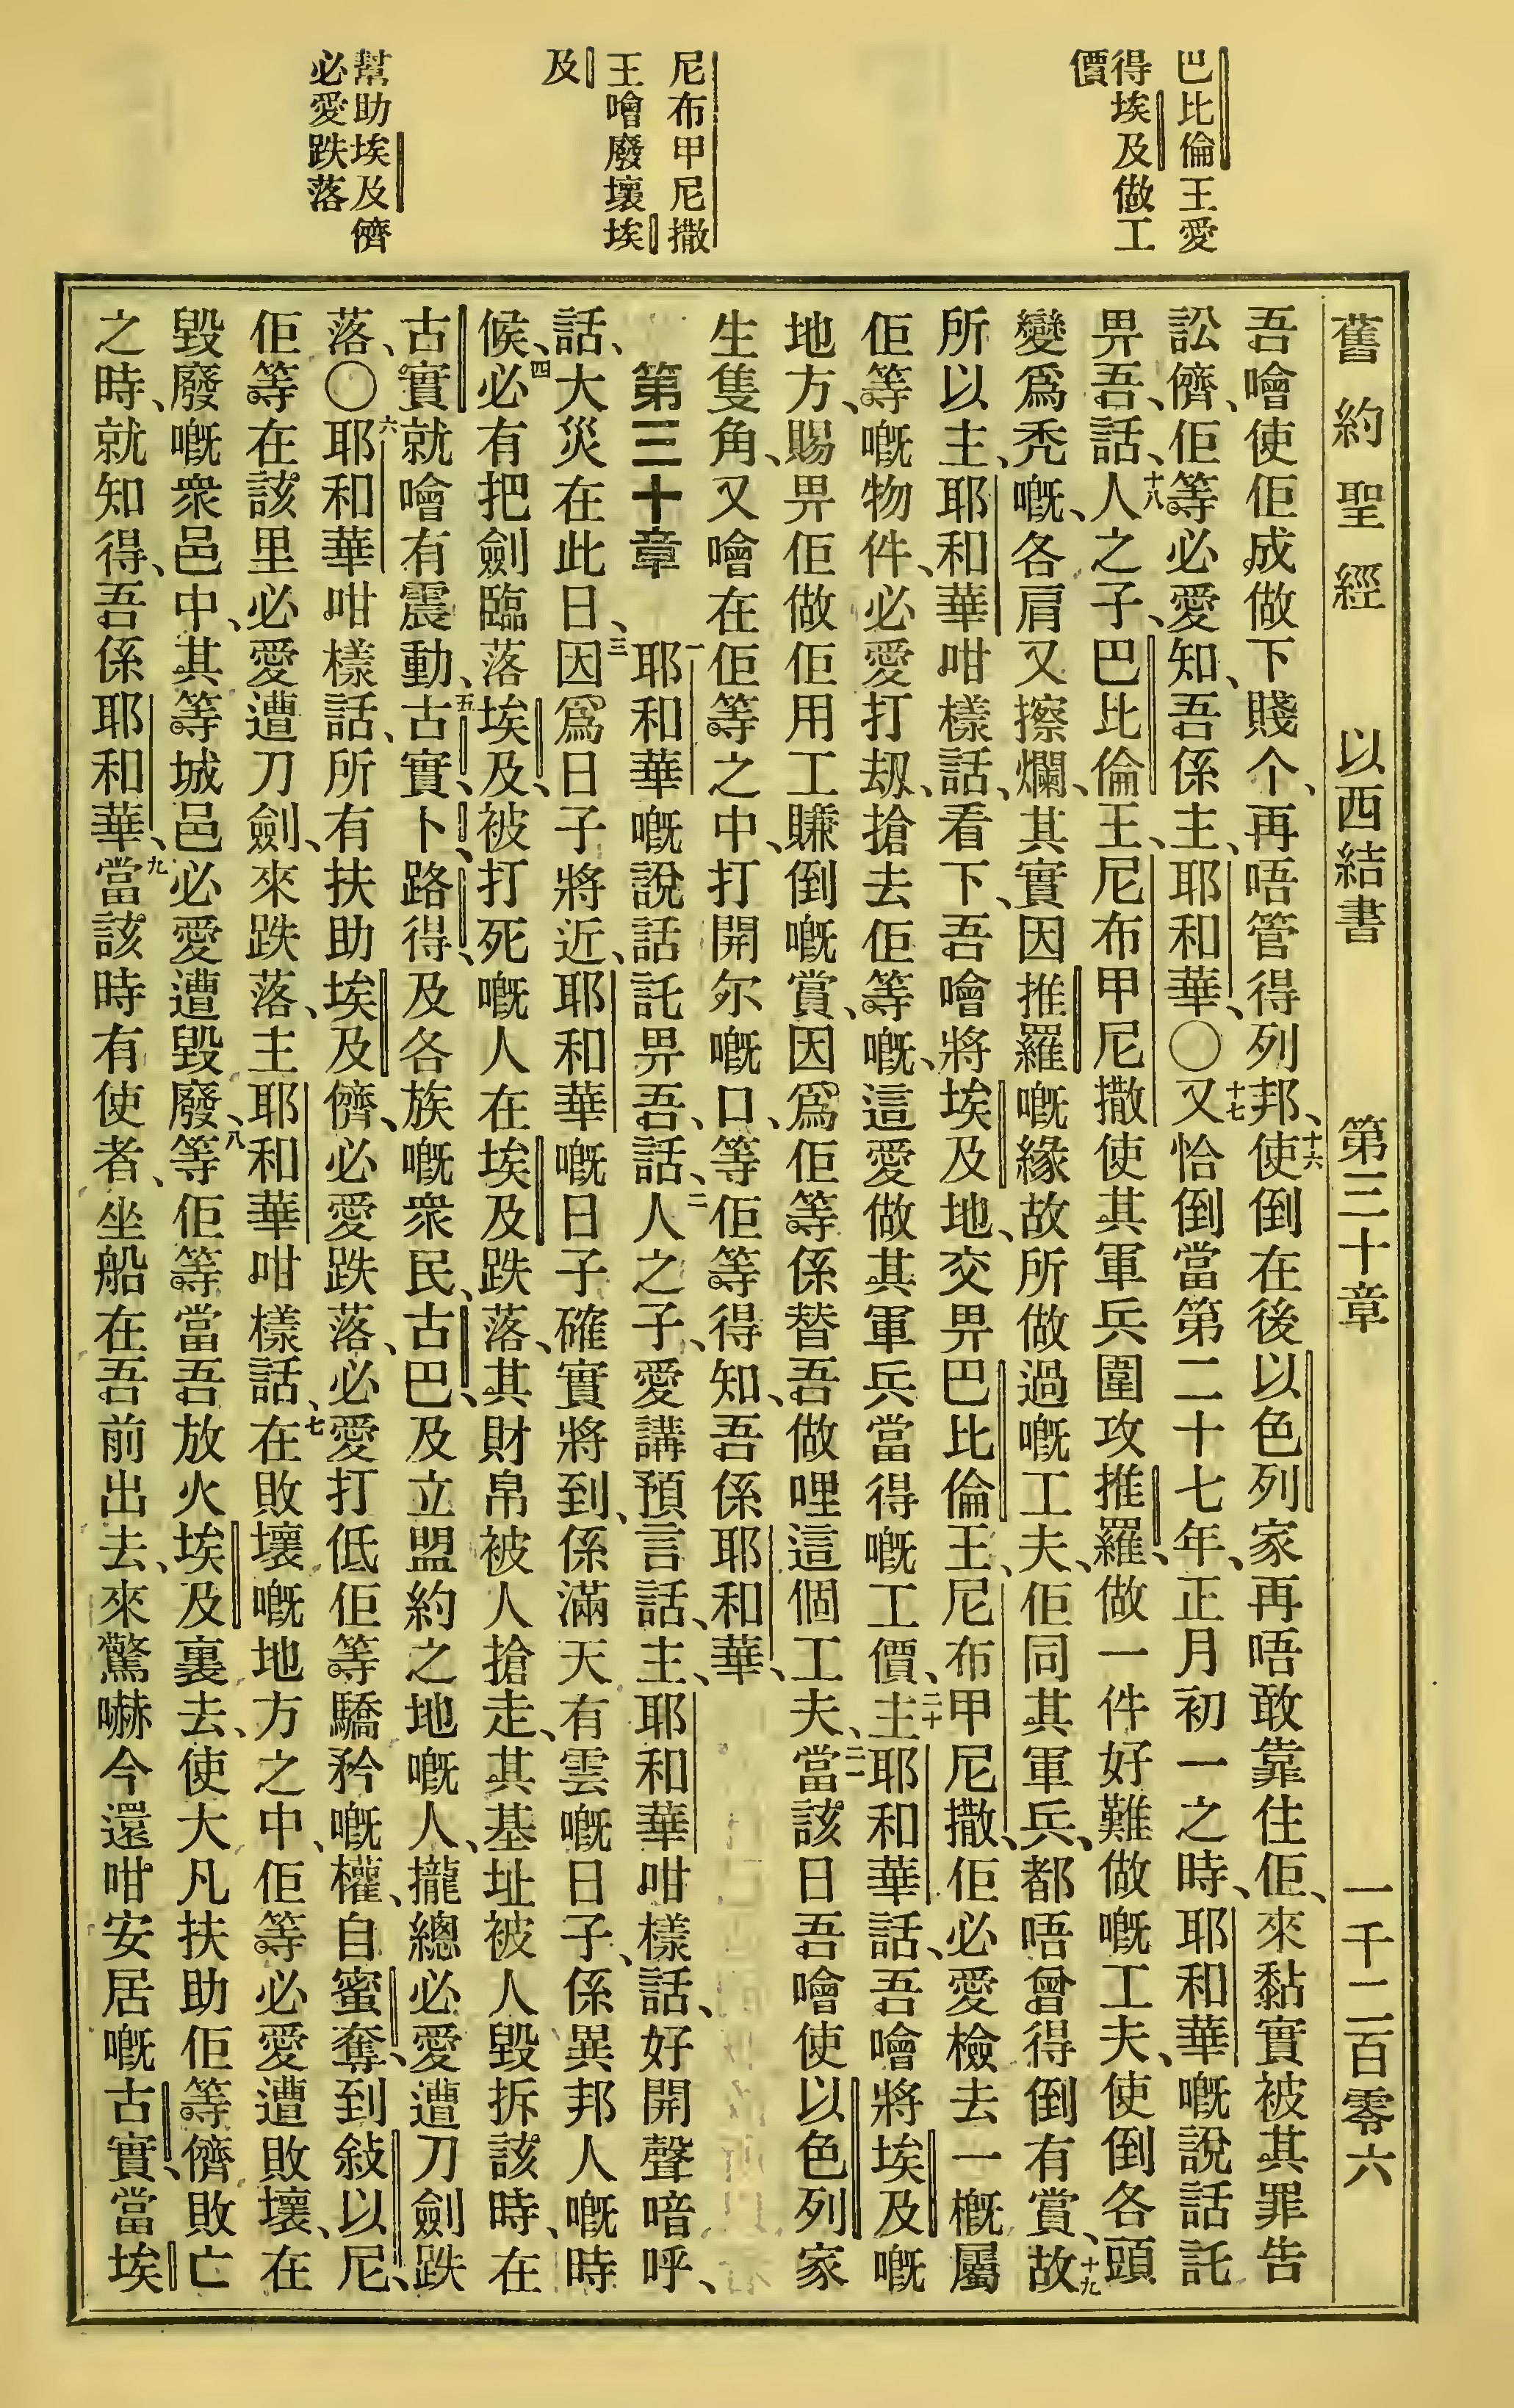 巴比倫王愛
得埃及做工
價
尼布甲尼撒
王噲廢壞埃
及
幫助埃及儕
必愛跌落
舊約聖經 以西結書 第三十章 一千二百零六
吾噲使佢成做下賤个、再唔管得列邦、十六使倒在後以色列家再唔敢靠住佢、來黏實被其罪告
訟儕、佢等必愛知、吾係主、耶和華、〇十七又恰倒當第二十七年、正月初一之時、耶和華嘅說話託
畀吾、話、十八人之子、巴比倫王、尼布甲尼撒使其軍兵圍攻推羅、做一件好難做嘅工夫、使倒各頭
變爲禿嘅、各肩又擦爛、其實因推羅嘅緣故所做過嘅工夫、佢同其軍兵、都唔曾得倒有賞、十九故
所以主、耶和華咁樣話、看下、吾噲將埃及地、交畀巴比倫王、尼布甲尼撒、佢必愛檢去一概屬
佢等嘅物件、必愛打刼、搶去佢等嘅、這愛做其軍兵當得嘅工價、二十主耶和華話、吾噲將埃及嘅
地方、賜畀佢做佢用工賺倒嘅賞、因爲佢等係替吾做哩這個工夫、二一當該日吾噲使以色列家
生隻角、又噲在佢等之中、打開尔嘅口、等佢等得知、吾係耶和華、
第三十章 一耶和華嘅說話託畀吾、話、二人之子、愛講預言話、主、耶和華咁樣話、好開聲喑呼、
話、大災在此日、三因爲日子將近、耶和華嘅日子確實將到、係滿天有雲嘅日子、係異邦人嘅時
候、四必有把劍臨落埃及、被打死嘅人在埃及跌落、其財帛被人搶走、其基址被人毀拆該時、在
古實就噲有震動、五古實、卜、路得、及各族嘅衆民、古巴、及立盟約之地嘅人、攏總必愛遭刀劍跌
落、〇六耶和華咁樣話、所有扶助埃及儕、必愛跌落、必愛打低佢等驕矜嘅權、自蜜奪、到敍以尼、
佢等在該里必愛遭刀劍、來跌落、主耶和華咁樣話、七在敗壞嘅地方之中、佢等必愛遭敗壞、在
毀廢嘅衆邑中、其等城邑必愛遭毀廢、八等佢等當吾放火埃及裏去、使大凡扶助佢等儕敗亡
之時、就知得、吾係耶和華、九當該時有使者、坐船在吾前出去、來驚嚇今還咁安居嘅古實、當埃